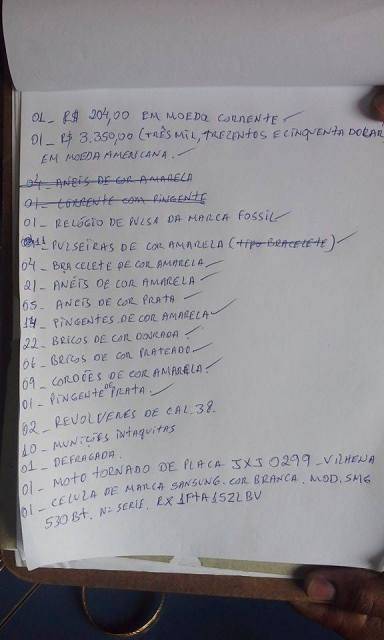 01 - R$ 204,00 EM MOEDA CORRENTE
01 - R$ 3.350,00 (TRÊS MIL, TREZENTOS E CINQUENTA DOLAR
EM MOEDA AMERICANA.
04 - ANEIS DE COR AMARELA
01 - CORRENTE COM PINGENTE
01 - RELÓGIO DE PULSA DA MARCA FOSSIL
11 PULSEIRAS DE COR AMARELA (TIPO BRACELETE)
04 - BRACELETE DE COR AMARELA
21 - ANÉIS DE COR AMARELA
05 - ANEIS DE COR PRATA
14 - PINGENTES DE COR AMARELA
22 - BRICOS DE COR DOURADA
06 - BRICOS DE COR PRATEADO
09 - CORDÕES DE COR AMARELA
01 - PINGENTE DE PRATA
02 - REVOLVERES DE CAL. 38.
10 - MUNIÇÕES INTAQUITAS
01 - DEFRAGADA.
01 - MOTO TORNADO DE PLACA JXJ 0299 - VILHENA
01 - CELULA DE MARCA SANSUNG. COR BRANCA. MOD. SMG
530BT. Nº SERIE. RX1FTA152LBV